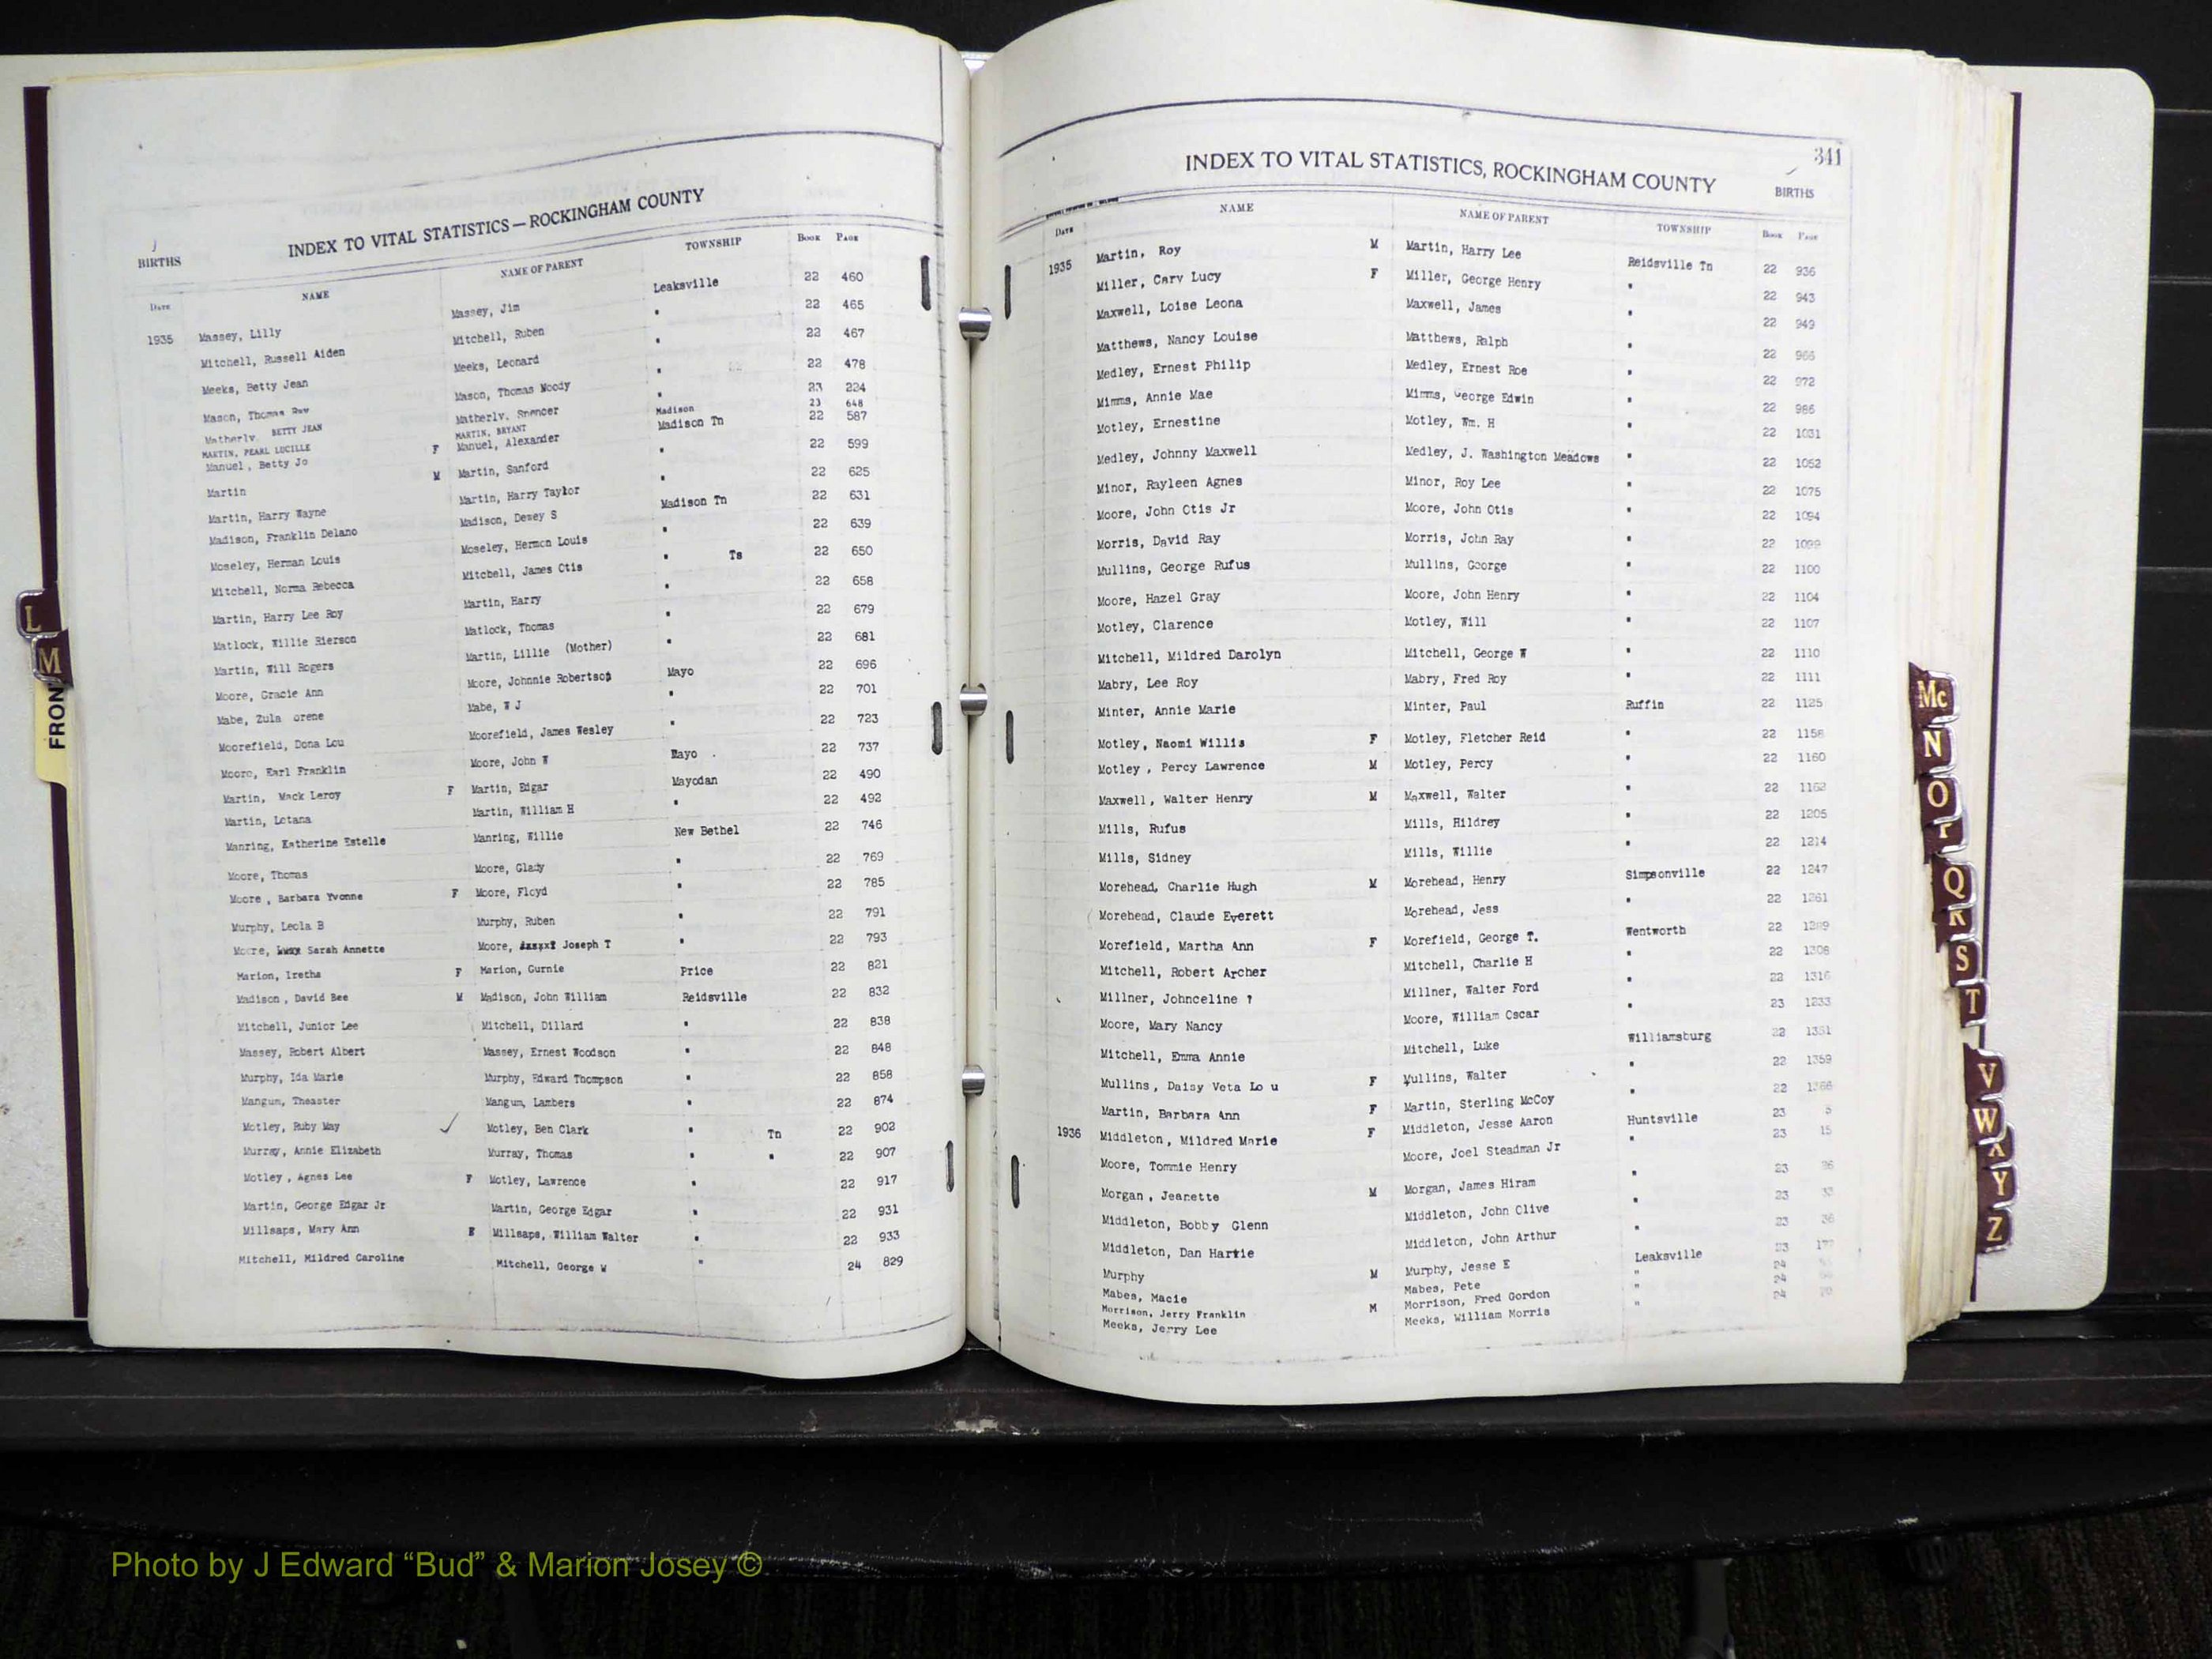 INDEX TO VITAL STATISTICS — ROCKINGHAM COUNTY
BIRTHS
Date NAME NAME OF PARENT TOWNSHIP Book Page
1935 Massey, Lilly Massey, Jim Leaksville 22 460
Mitchell, Russell Aiden Mitchell, Ruben " 22 465
Meeks, Betty Jean Meeks, Leonard " 22 467
Mason, Thomas Mason, Thomas Woody " 22 478
Matherly BETTY JEAN Matherly, Spencer " 23 224
MARTIN, PEARL LUCILLE MARTIN, BRYANT Madison 23 648
Manuel, Betty Jo F Manuel, Alexander Madison Tn 22 587
Martin M Martin, Sanford " 22 599
Martin, Harry Wayne Martin, Harry Taylor " 22 625
Madison, Franklin Delano Madison, Dewey S Madison Tn 22 631
Moseley, Herman Louis Moseley, Hermon Louis " 22 639
Mitchell, Norma Rebecca Mitchell, James Otis " Ts 22 650
Martin, Harry Lee Roy Martin, Harry " 22 658
Matlock, Willie Rierson Matlock, Thomas " 22 679
Martin, Will Rogers Martin, Lillie (Mother) " 22 681
Moore, Gracie Ann Moore, Johnnie Robertson Mayo 22 696
Mabe, Zula orene Mabe, W J " 22 701
Moorefield, Dona Lou Moorefield, James Wesley " 22 723
Moore, Earl Franklin Moore, John W Mayo 22 737
Martin, Mack Leroy F Martin, Edgar Mayodan 22 490
Martin, Letana Martin, William H " 22 492
Manring, Katherine Estelle Manring, Willie New Bethel 22 746
Moore, Thomas Moore, Glady " 22 769
Moore, Barbara Yvonne F Moore, Floyd " 22 785
Murphy, Leola B Murphy, Ruben " 22 791
Moore, Sarah Annette Moore, Joseph T " 22 793
Marion, Iretha F Marion, Gurnie Price 22 821
Madison, David Bee M Madison, John William Reidsville 22 832
Mitchell, Junior Lee Mitchell, Dillard " 22 838
Massey, Robert Albert Massey, Ernest Woodson " 22 848
Murphy, Ida Marie Murphy, Edward Thompson " 22 858
Mangum, Theaster Mangum, Lambers " 22 874
Motley, Ruby May ✓ Motley, Ben Clark " Tn 22 902
Murray, Annie Elizabeth Murray, Thomas " " 22 907
Motley, Agnes Lee F Motley, Lawrence " 22 917
Martin, George Edgar Jr Martin, George Edgar " 22 931
Millsaps, Mary Ann F Millsaps, William Walter " 22 933
Mitchell, Mildred Caroline Mitchell, George W " 24 829
341
INDEX TO VITAL STATISTICS, ROCKINGHAM COUNTY
BIRTHS
Date NAME NAME OF PARENT TOWNSHIP Book Page
1935 Martin, Roy M Martin, Harry Lee Reidsville Tn 22 936
Miller, Cary Lucy F Miller, George Henry " 22 943
Maxwell, Loise Leona Maxwell, James " 22 949
Matthews, Nancy Louise Matthews, Ralph " 22 966
Medley, Ernest Philip Medley, Ernest Roe " 22 972
Mimms, Annie Mae Mimms, George Edwin " 22 986
Motley, Ernestine Motley, Wm. H " 22 1031
Medley, Johnny Maxwell Medley, J. Washington Meadows " 22 1052
Minor, Rayleen Agnes Minor, Roy Lee " 22 1075
Moore, John Otis Jr Moore, John Otis " 22 1094
Morris, David Ray Morris, John Ray " 22 1099
Mullins, George Rufus Mullins, George " 22 1100
Moore, Hazel Gray Moore, John Henry " 22 1104
Motley, Clarence Motley, Will " 22 1107
Mitchell, Mildred Darolyn Mitchell, George W " 22 1110
Mabry, Lee Roy Mabry, Fred Roy " 22 1111
Minter, Annie Marie Minter, Paul Ruffin 22 1125
Motley, Naomi Willis F Motley, Fletcher Reid " 22 1158
Motley, Percy Lawrence M Motley, Percy " 22 1160
Maxwell, Walter Henry M Maxwell, Walter " 22 1162
Mills, Rufus Mills, Hildrey " 22 1205
Mills, Sidney Mills, Willie " 22 1214
Morehead, Charlie Hugh M Morehead, Henry Simpsonville 22 1247
Morehead, Claude Everett Morehead, Jess " 22 1261
Morefield, Martha Ann F Morefield, George T. Wentworth 22 1289
Mitchell, Robert Archer Mitchell, Charlie H " 22 1308
Millner, Johnceline ? Millner, Walter Ford " 22 1316
Moore, Mary Nancy Moore, William Oscar " 23 1233
Mitchell, Emma Annie Mitchell, Luke Williamsburg 22 1351
Mullins, Daisy Veta Lo u F Mullins, Walter " 22 1359
Martin, Barbara Ann F Martin, Sterling McCoy " 22 1366
1936 Middleton, Mildred Marie F Middleton, Jesse Aaron Huntsville 23 5
Moore, Tommie Henry Moore, Joel Steadman Jr " 23 15
Morgan, Jeanette M Morgan, James Hiram " 23
Middleton, Bobby Glenn Middleton, John Clive " 23
Middleton, Dan Hartie Middleton, John Arthur " 23 36
Murphy M Murphy, Jesse E Leaksville 23 177
Mabes, Macie Mabes, Pete " 24
Morrison, Jerry Franklin M Morrison, Fred Gordon " 24
Meeks, Jerry Lee Meeks, William Morris " 24
L
M
FRON
Mc
N
O
Q
R
S
T
V
W
X
Y
Z
Photo by J Edward “Bud” & Marion Josey ©